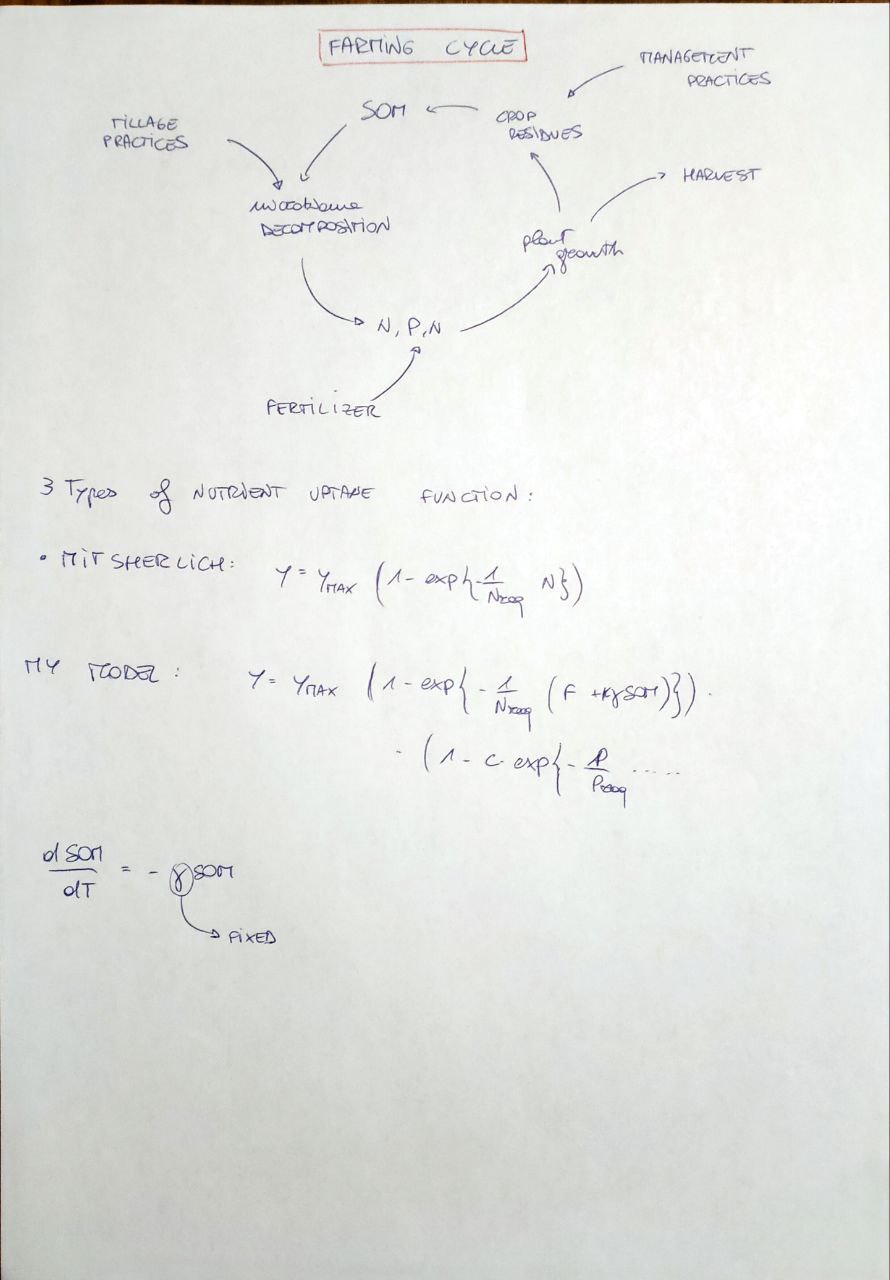 FARMING CYCLE
MANAGEMENT
PRACTICES
SOM
CROP
RESIDUES
TILLAGE
PRACTICES
HARVEST
microbiome
DECOMPOSITION
plant
growth
N, P, N
FERTILIZER
3 Types of NUTRIENT UPTAKE FUNCTION:
• MITSHERLICH: Y = Y_MAX (1 - exp{-1/N_req N})
MY MODEL: Y = Y_MAX (1 - exp{-1/N_req (F + kγSOM)}) ·
· (1 - c exp{-P/P_req .....
dSOM/dT = - γ SOM
FIXED